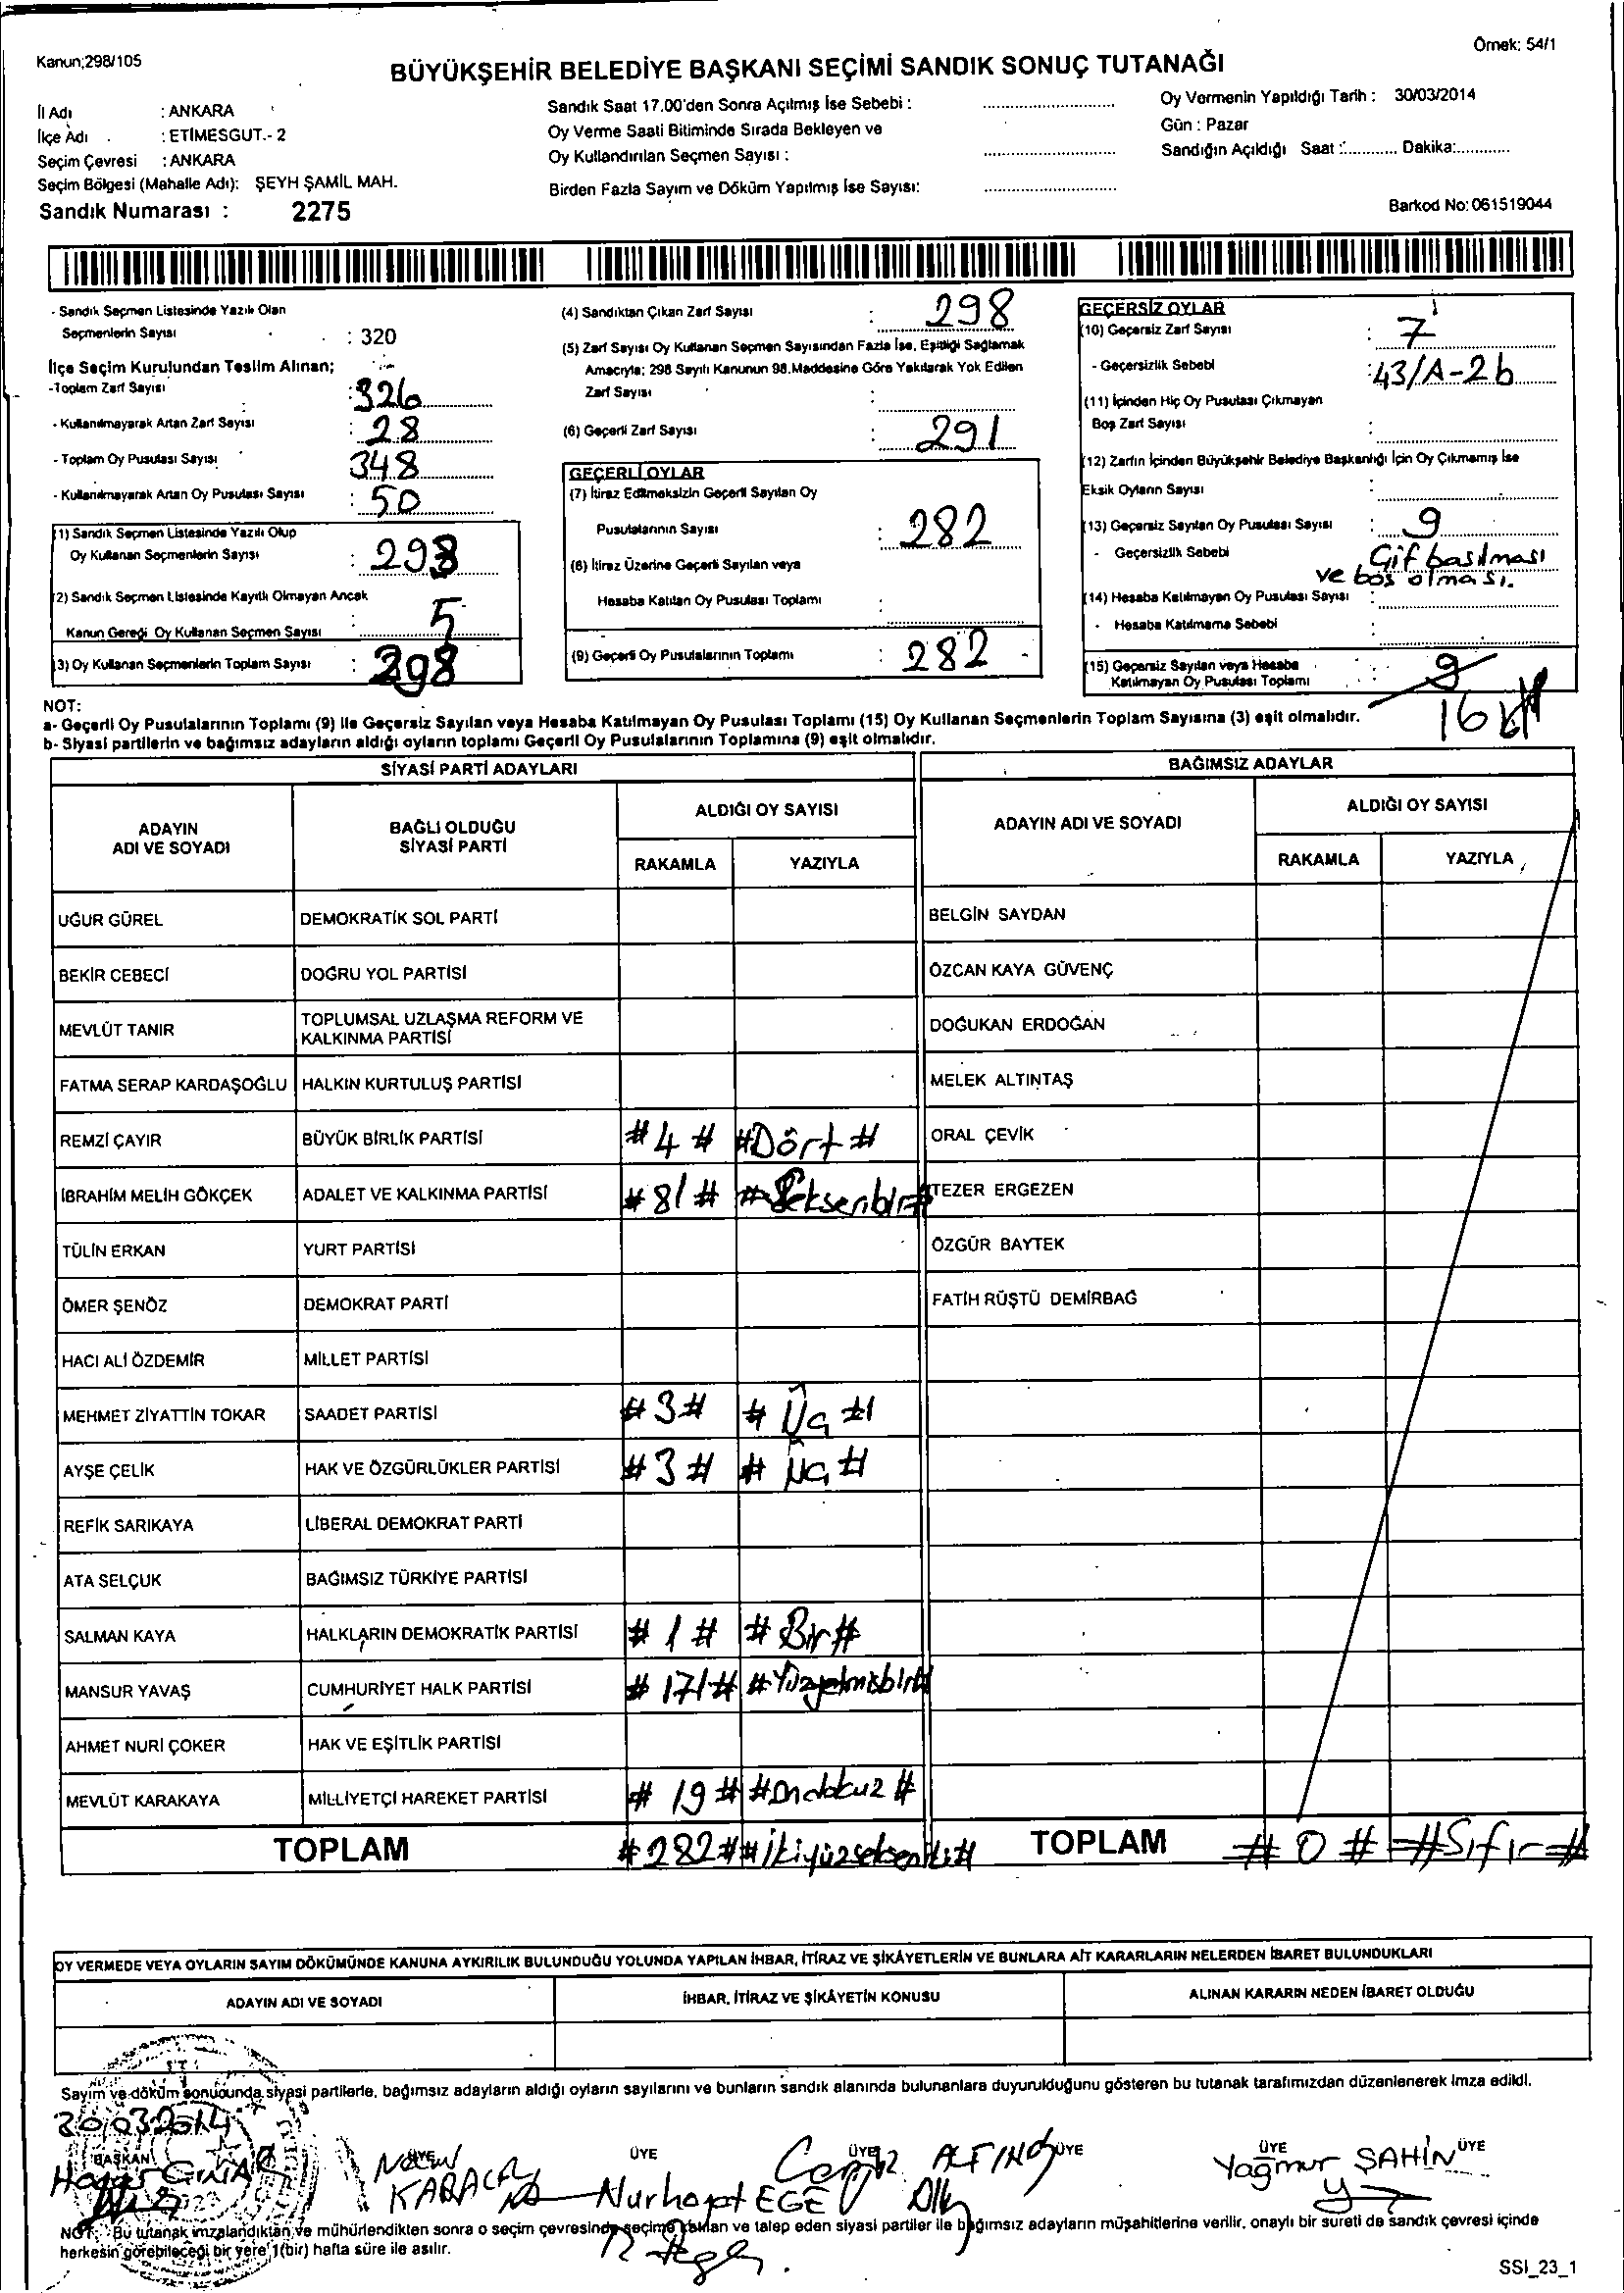 Kanun;298/105
Örnek: 54/1
BÜYÜKŞEHİR BELEDİYE BAŞKANI SEÇİMİ SANDIK SONUÇ TUTANAĞI
İl Adı : ANKARA
İlçe Adı : ETİMESGUT.- 2
Seçim Çevresi : ANKARA
Seçim Bölgesi (Mahalle Adı): ŞEYH ŞAMİL MAH.
Sandık Numarası : 2275
Sandık Saat 17.00'den Sonra Açılmış İse Sebebi :
Oy Verme Saati Bitiminde Sırada Bekleyen ve
Oy Kullandırılan Seçmen Sayısı :
Birden Fazla Sayım ve Döküm Yapılmış İse Sayısı:
Oy Vermenin Yapıldığı Tarih : 30/03/2014
Gün : Pazar
Sandığın Açıldığı Saat :............ Dakika:............
Barkod No: 061519044
- Sandık Seçmen Listesinde Yazılı Olan
Seçmenlerin Sayısı : 320
İlçe Seçim Kurulundan Teslim Alınan;
-Toplam Zarf Sayısı : 326
- Kullanılmayarak Artan Zarf Sayısı : 28
- Toplam Oy Pusulası Sayısı 348
- Kullanılmayarak Artan Oy Pusulası Sayısı : 50
(1) Sandık Seçmen Listesinde Yazılı Olup
Oy Kullanan Seçmenlerin Sayısı : 293
(2) Sandık Seçmen Listesinde Kayıtlı Olmayan Ancak
Kanun Gereği Oy Kullanan Seçmen Sayısı : 5
(3) Oy Kullanan Seçmenlerin Toplam Sayısı : 298
(4) Sandıktan Çıkan Zarf Sayısı : 298
(5) Zarf Sayısı Oy Kullanan Seçmen Sayısından Fazla İse, Eşitliği Sağlamak
Amacıyla; 298 Sayılı Kanunun 98.Maddesine Göre Yakılarak Yok Edilen
Zarf Sayısı :
(6) Geçerli Zarf Sayısı : 291
GEÇERLİ OYLAR
(7) İtiraz Edilmeksizin Geçerli Sayılan Oy
Pusulalarının Sayısı : 282
(8) İtiraz Üzerine Geçerli Sayılan veya
Hesaba Katılan Oy Pusulası Toplamı :
(9) Geçerli Oy Pusulalarının Toplamı : 282
GEÇERSİZ OYLAR
(10) Geçersiz Zarf Sayısı : 7
- Geçersizlik Sebebi : 43/A-2b
(11) İçinden Hiç Oy Pusulası Çıkmayan
Boş Zarf Sayısı :
(12) Zarfın İçinden Büyükşehir Belediye Başkanlığı İçin Oy Çıkmamış İse
Eksik Oyların Sayısı :
(13) Geçersiz Sayılan Oy Pusulası Sayısı : 9
- Geçersizlik Sebebi : Çift basılması
ve boş olması.
(14) Hesaba Katılmayan Oy Pusulası Sayısı :
- Hesaba Katılmama Sebebi :
(15) Geçersiz Sayılan veya Hesaba
Katılmayan Oy Pusulası Toplamı : 9
16
NOT:
a- Geçerli Oy Pusulalarının Toplamı (9) ile Geçersiz Sayılan veya Hesaba Katılmayan Oy Pusulası Toplamı (15) Oy Kullanan Seçmenlerin Toplam Sayısına (3) eşit olmalıdır.
b- Siyasi partilerin ve bağımsız adayların aldığı oyların toplamı Geçerli Oy Pusulalarının Toplamına (9) eşit olmalıdır.
SİYASİ PARTİ ADAYLARI
ADAYIN ADI VE SOYADI
BAĞLI OLDUĞU SİYASİ PARTİ
ALDIĞI OY SAYISI
RAKAMLA YAZIYLA
UĞUR GÜREL DEMOKRATİK SOL PARTİ
BEKİR CEBECİ DOĞRU YOL PARTİSİ
MEVLÜT TANIR TOPLUMSAL UZLAŞMA REFORM VE KALKINMA PARTİSİ
FATMA SERAP KARDAŞOĞLU HALKIN KURTULUŞ PARTİSİ
REMZİ ÇAYIR BÜYÜK BİRLİK PARTİSİ #4# #Dört#
İBRAHİM MELİH GÖKÇEK ADALET VE KALKINMA PARTİSİ #81# #Seksenbir#
TÜLİN ERKAN YURT PARTİSİ
ÖMER ŞENÖZ DEMOKRAT PARTİ
HACI ALİ ÖZDEMİR MİLLET PARTİSİ
MEHMET ZİYATTİN TOKAR SAADET PARTİSİ #3# #Üç#
AYŞE ÇELİK HAK VE ÖZGÜRLÜKLER PARTİSİ #3# #Üç#
REFİK SARIKAYA LİBERAL DEMOKRAT PARTİ
ATA SELÇUK BAĞIMSIZ TÜRKİYE PARTİSİ
SALMAN KAYA HALKLARIN DEMOKRATİK PARTİSİ #1# #Bir#
MANSUR YAVAŞ CUMHURİYET HALK PARTİSİ #171# #Yüzyetmişbir#
AHMET NURİ ÇOKER HAK VE EŞİTLİK PARTİSİ
MEVLÜT KARAKAYA MİLLİYETÇİ HAREKET PARTİSİ #19# #Ondokuz#
TOPLAM #282# #İkiyüzsekseniki#
BAĞIMSIZ ADAYLAR
ADAYIN ADI VE SOYADI
ALDIĞI OY SAYISI
RAKAMLA YAZIYLA
BELGİN SAYDAN
ÖZCAN KAYA GÜVENÇ
DOĞUKAN ERDOĞAN
MELEK ALTINTAŞ
ORAL ÇEVİK
TEZER ERGEZEN
ÖZGÜR BAYTEK
FATİH RÜŞTÜ DEMİRBAĞ
TOPLAM #0# #Sıfır#
OY VERMEDE VEYA OYLARIN SAYIM DÖKÜMÜNDE KANUNA AYKIRILIK BULUNDUĞU YOLUNDA YAPILAN İHBAR, İTİRAZ VE ŞİKAYETLERİN VE BUNLARA AİT KARARLARIN NELERDEN İBARET BULUNDUKLARI
ADAYIN ADI VE SOYADI İHBAR, İTİRAZ VE ŞİKAYETİN KONUSU ALINAN KARARIN NEDEN İBARET OLDUĞU
Sayım ve döküm sonucunda siyasi partilerle, bağımsız adayların aldığı oyların sayılarını ve bunların sandık alanında bulunanlara duyurulduğunu gösteren bu tutanak tarafımızdan düzenlenerek imza edildi.
30032014
BAŞKAN ÜYE ÜYE ÜYE ÜYE ÜYE ÜYE
Nurhayat EGE
Yağmur ŞAHİN
NOT: Bu tutanak imzalandıktan ve mühürlendikten sonra o seçim çevresinde seçime katılan ve talep eden siyasi partiler ile bağımsız adayların müşahitlerine verilir, onaylı bir sureti de sandık çevresi içinde
herkesin görebileceği bir yere 1(bir) hafta süre ile asılır.
SSI_23_1